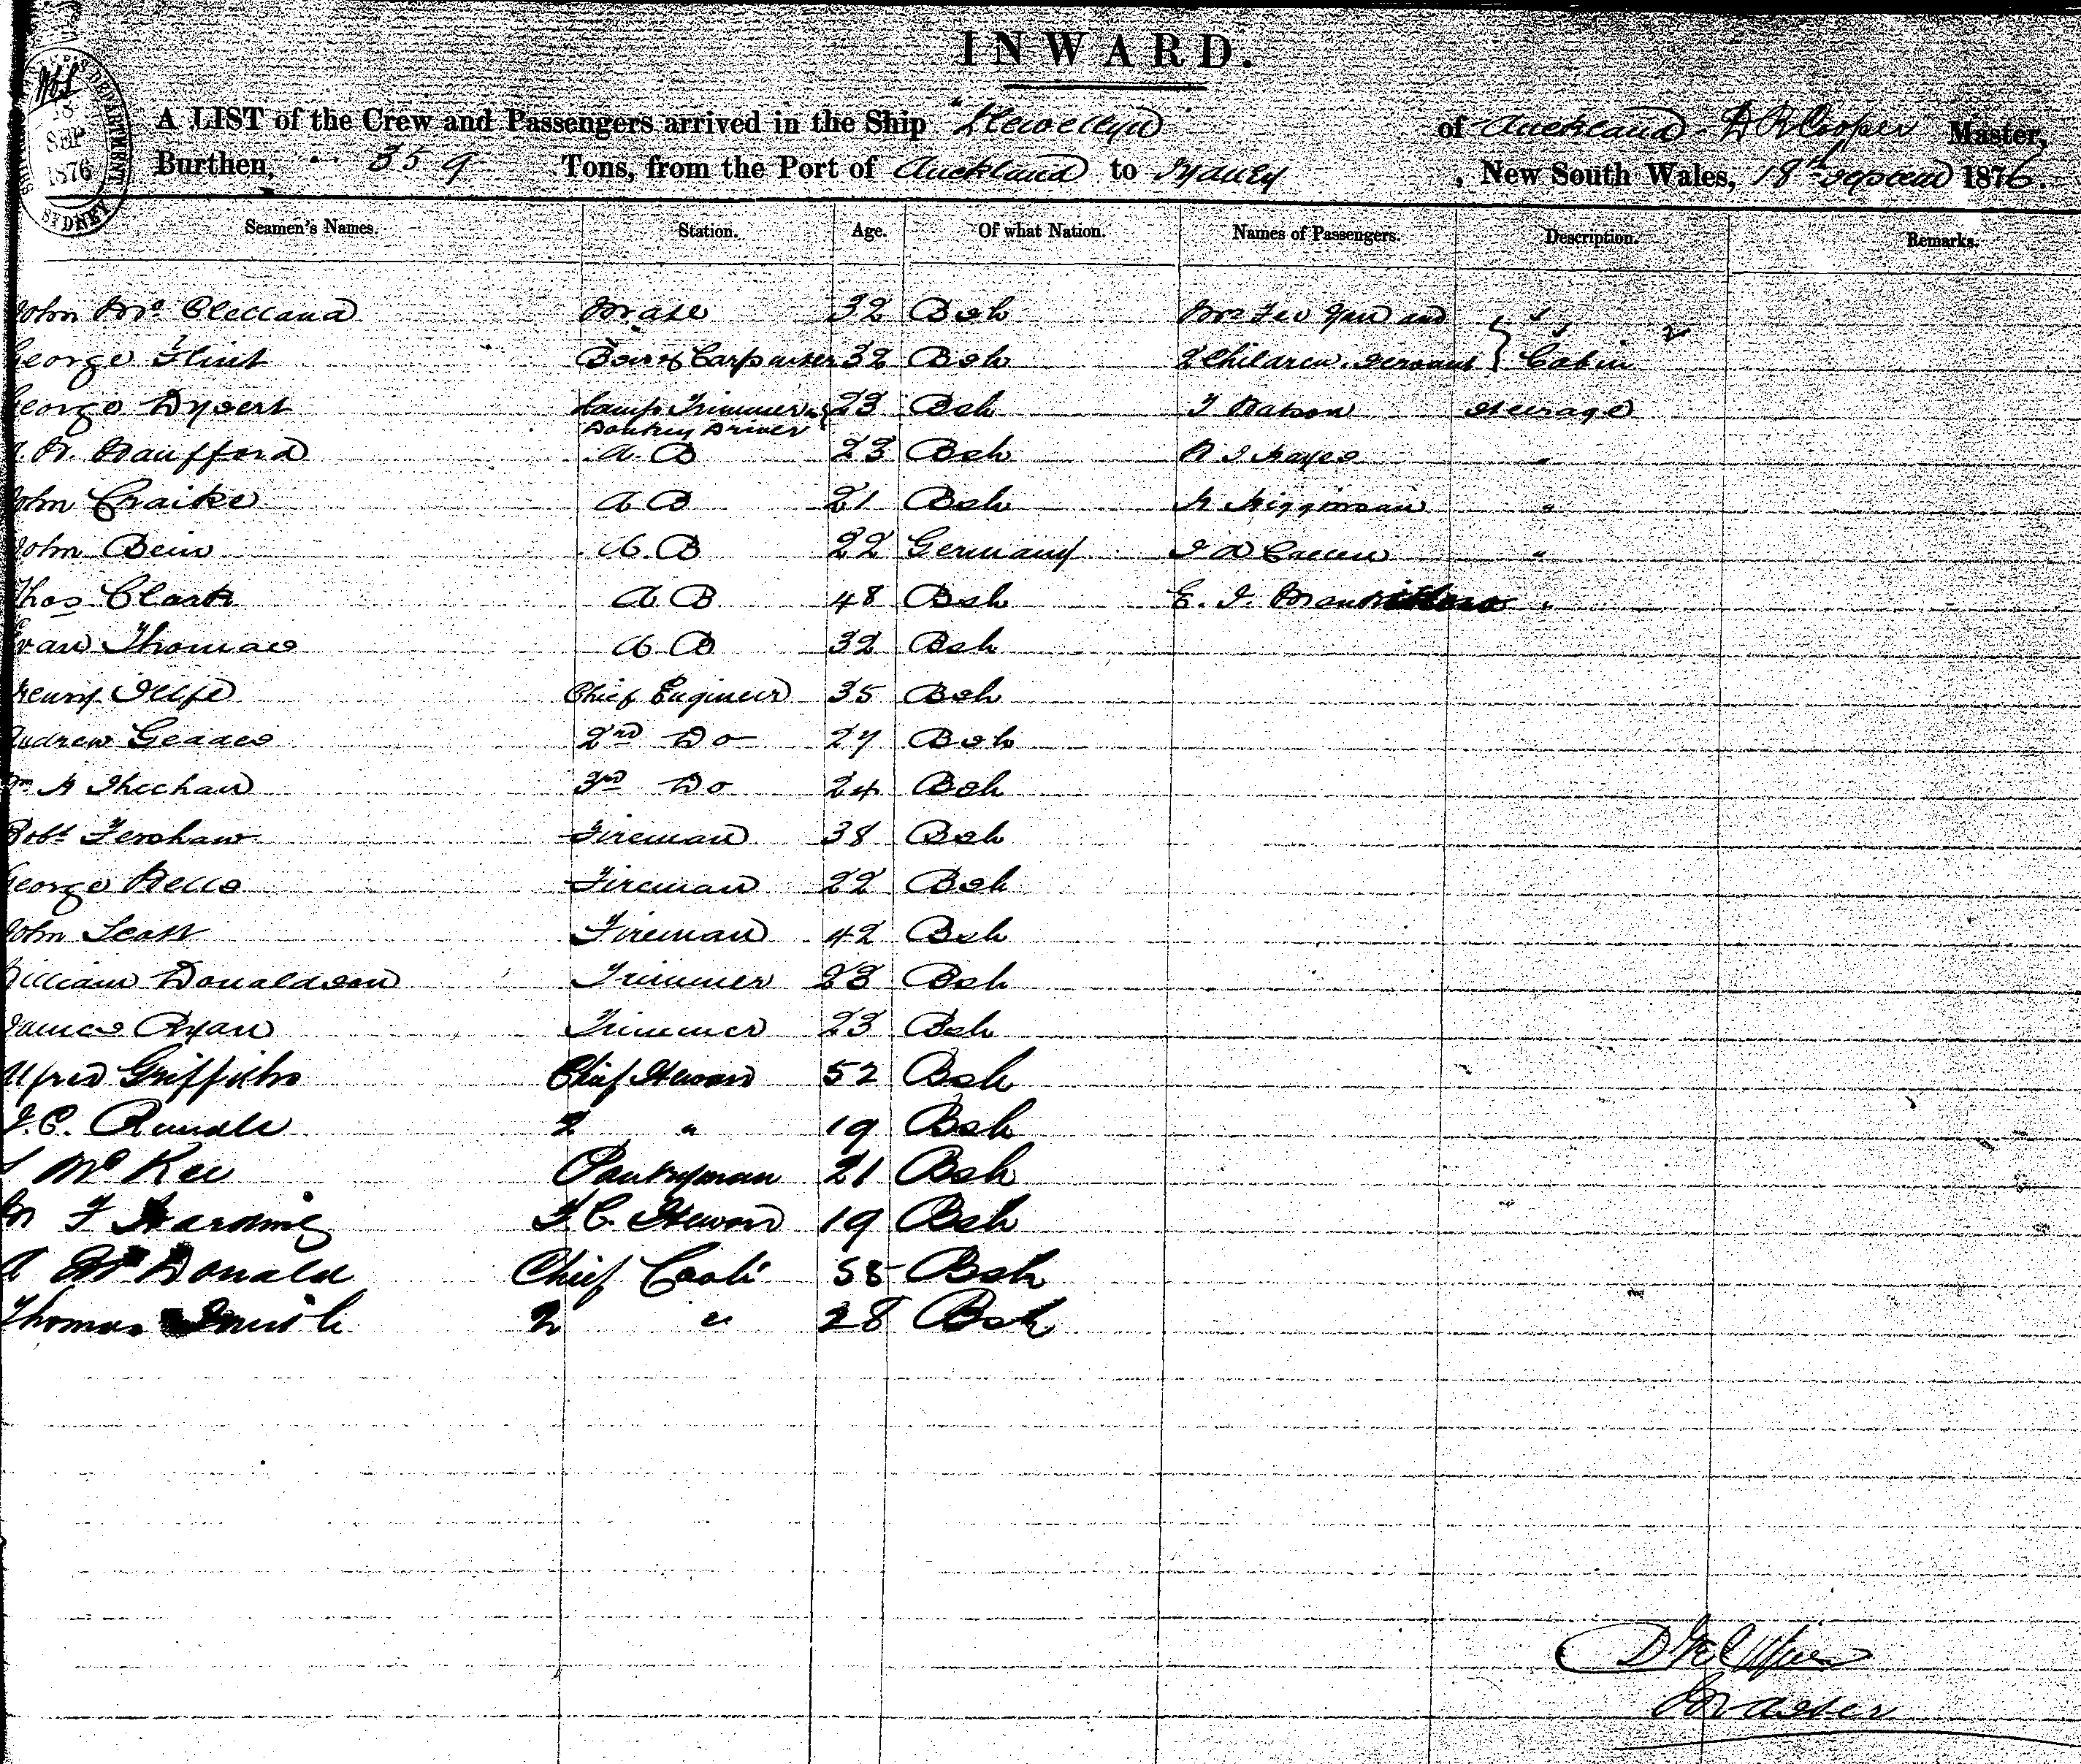 INWARD.
SEP
1876
SYDNEY
A LIST of the Crew and Passengers arrived in the Ship "Llewellyn" of Auckland D R Cooper Master,
Burthen, 359 Tons, from the Port of Auckland to Sydney, New South Wales, 18th 1876.
Seamen's Names. Station. Age. Of what Nation. Names of Passengers. Description. Remarks.
John Mc Clelland Mate 32 Bsh Mrs and
George Flint Carpenter 32 Bsh 2 Children Servant } Cabin
George Lamp Trimmer & 23 Bsh T Watson Steerage
Donkey Driver
A.B 23 Bsh Hayes "
John A B 21 Bsh "
John A.B 22 Germany "
Thos Clark A B 48 Bsh E. "
Evan Thomas A B 32 Bsh
Henry Chief Engineer 35 Bsh
Andrew Geddes 2nd Do 27 Bsh
Wm H Sheehan 3rd Do 24 Bsh
Robt Fireman 38 Bsh
George Wells Fireman 22 Bsh
John Scott Fireman 42 Bsh
William Donaldson Trimmer 23 Bsh
James Ryan Trimmer 23 Bsh
Alfred Griffiths Chief Steward 52 Bsh
J.C. Rundle 2 " 19 Bsh
Mc Kee Pantryman 21 Bsh
F Harding F.C. Steward 19 Bsh
A Mc Donald Chief Cook 55 Bsh
Thomas Smith 2 " 28 Bsh
Master